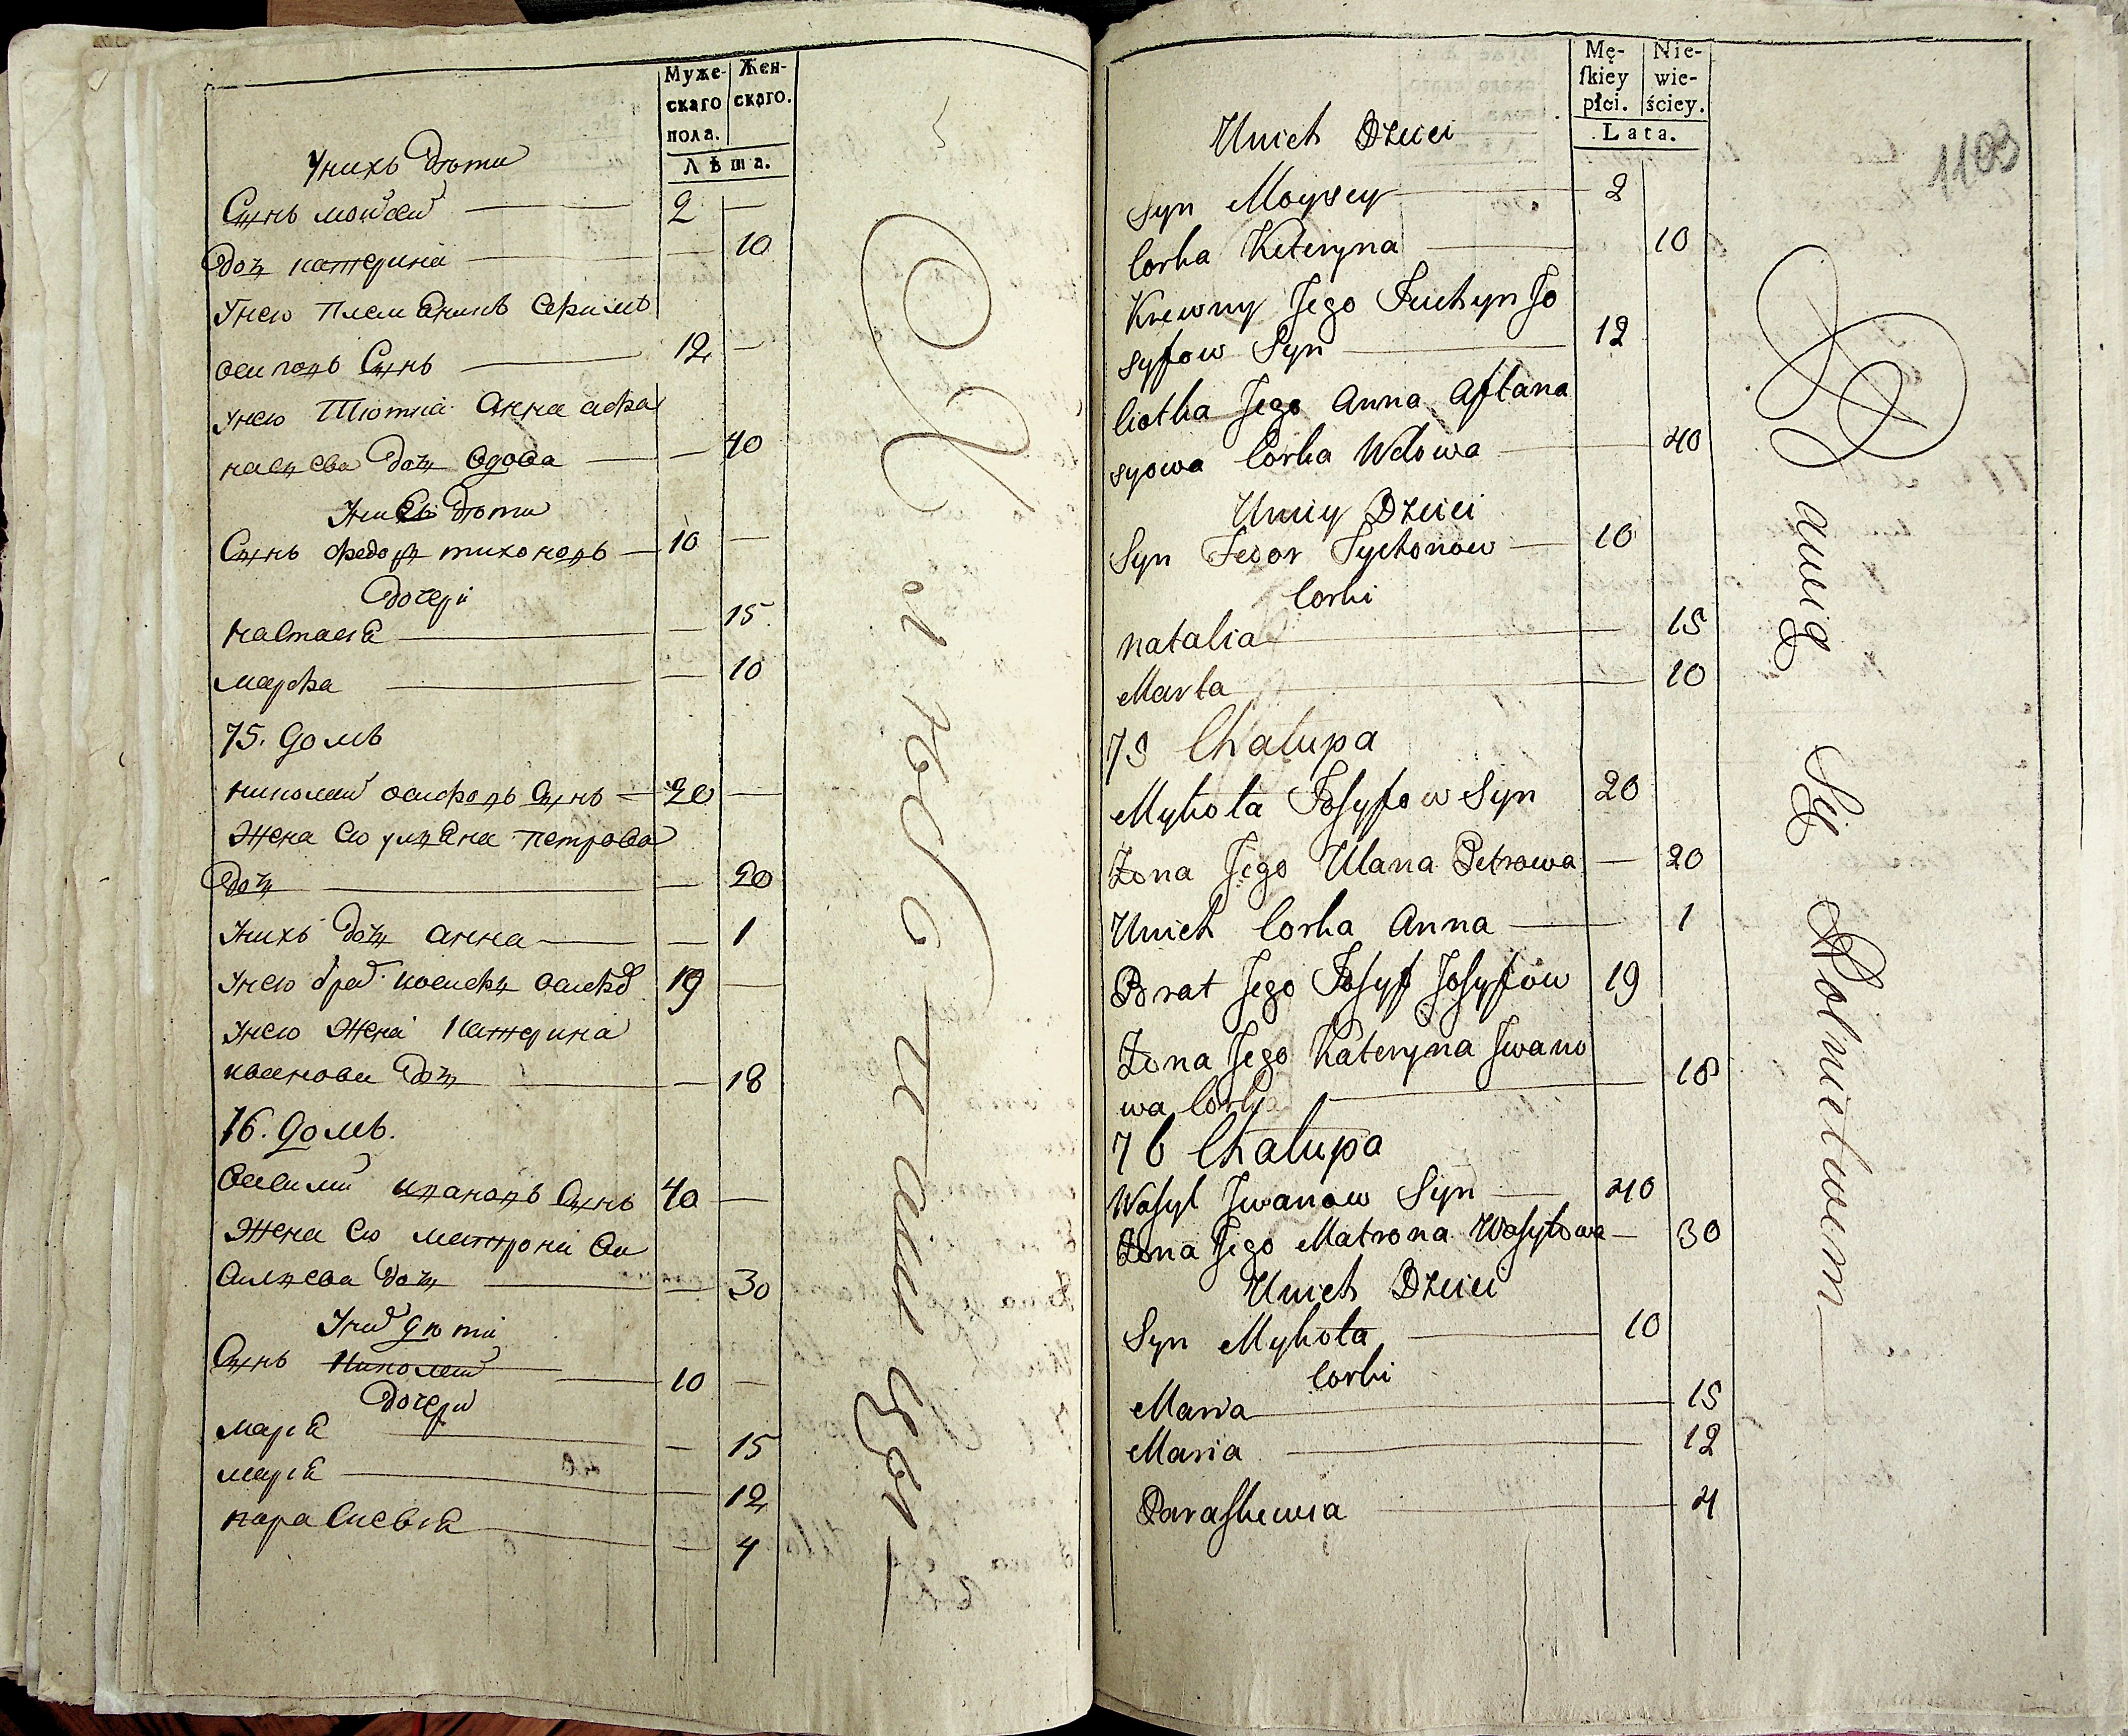 Муже-
скаго
пола.
Жен-
скаго.
Лѣта.
Унихъ Дѣти
Сынъ мойсей 2 —
Дочь катерина — 10
Унего племеникъ Ефимъ
осиповъ Сынъ 12 —
унего Тіотка Анна афа
насцева дочь вдова — 40
Унией дѣти
Сынъ федоръ тихоновъ — 10 —
Дочери
настасія — 15
марфа — 10
75. Домъ
николай осифовъ Сынъ — 20 —
Жена Его улияна петрова
дочь — 20
Унихъ дочь анна — 1
Унего брат иосифъ осифов 19 —
Унего Жена Катерина
иванова дочь — 18
76. Домъ.
василий ивановъ Сынъ 40 —
Жена Его матрона ва
силцева дочь — 30
Уних дѣти
Сынъ николай 10 —
Дочери
марія — 15
марія — 12
парасковія — 4
Mę-
ſkiey
płci.
Nie-
wie-
ściey.
Lata.
1103
Unich Dzieci
Syn Moysey 2
Corka Kateryna 10
Krewny Jego Juchym Jo
syfow Syn 12
Ciotka Jego Anna Aftana
syowa Corka Wdowa 40
Uniey Dzieci
Syn Fedor Tychonow 10
Corki
Natalia 15
Marta 10
75 Chałupa
Mykoła Josyfow Syn 20
Żona Jego Ulana Petrowa — 20
Unich Corka Anna 1
Brat Jego Josyf Josyfow 19
Żona Jego Kateryna Iwano
wa Corka 18
76 Chałupa
Wasyl Iwanow Syn 40
Żona Jego Matrona Wasylowa — 30
Unich Dzieci
Syn Mykoła 10
Corki
Maria 15
Maria 12
Paraskewia 4